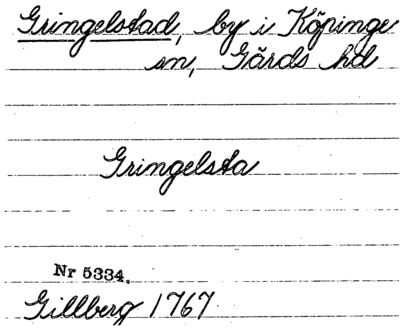 Gringelstad, by i Köpinge
sn, Gärds hd
Gringelsta
Nr 5334.
Gillberg 1767